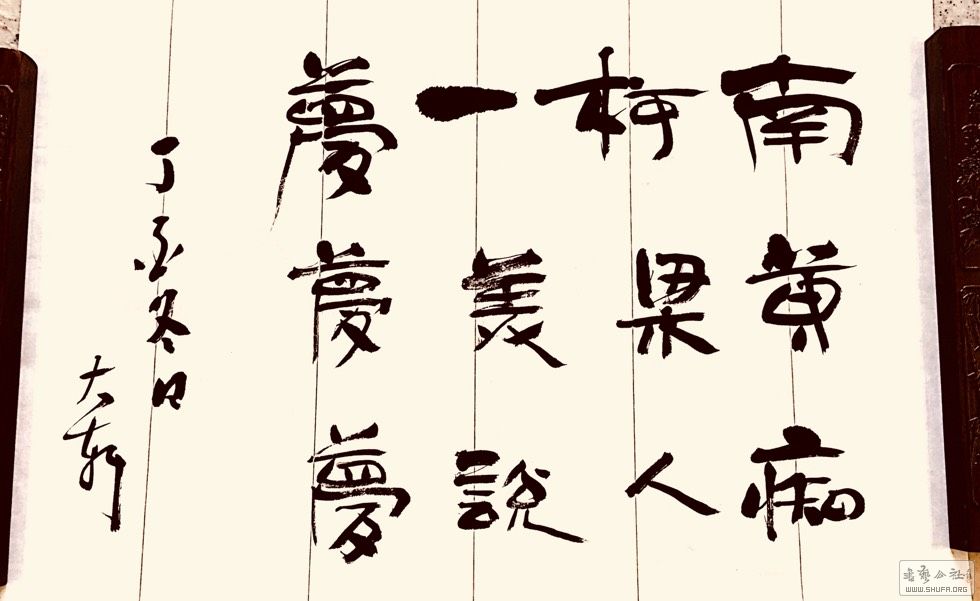 南柯一夢
黄梁美夢
痴人說夢
丁冬日
大軒
書藝公社
WWW.SHUFA.ORG